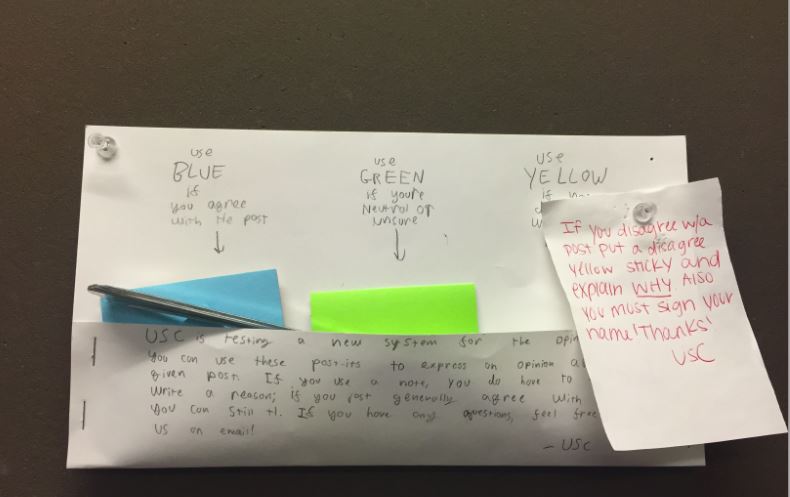 use
BLUE
if
you agree
with the post
use
GREEN
if you're
Neutral or
unsure
use
YELLOW
if
If you disagree w/a
post put a disagree
yellow sticky and
explain WHY. Also
you must sign your
name! Thanks!
USC
USC is testing a new system for the
You can use these post-its to express an opinion
given post. If you use a note, you do have to
write a reason; if you just generally agree with
you can still
If you have any questions, feel free
us an email!
- USC